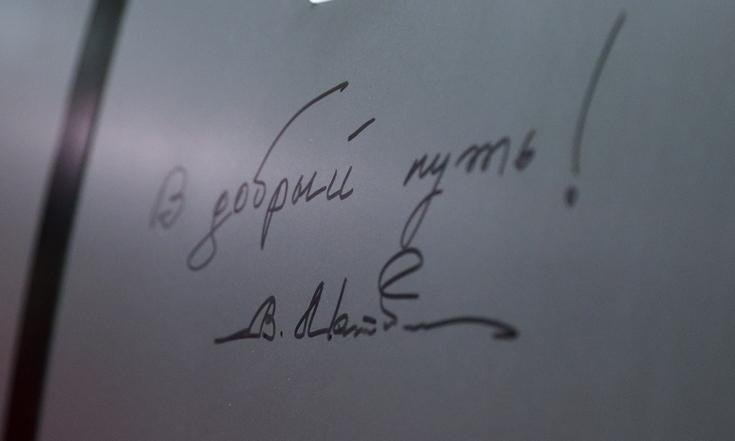 В добрый путь!
В.